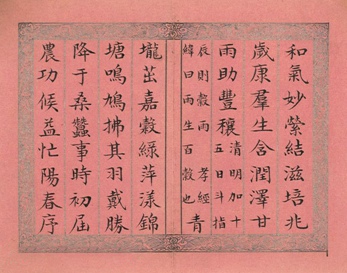 和氣妙縈結滋培兆
歲康羣生含潤澤甘
雨助豐穰清明加十
五日斗指
辰則穀雨 孝經
緯曰雨生百穀也青
壠茁嘉穀綠萍漾錦
塘鳴鳩拂其羽戴勝
降于桑蠶事時初屆
農功候益忙陽春序